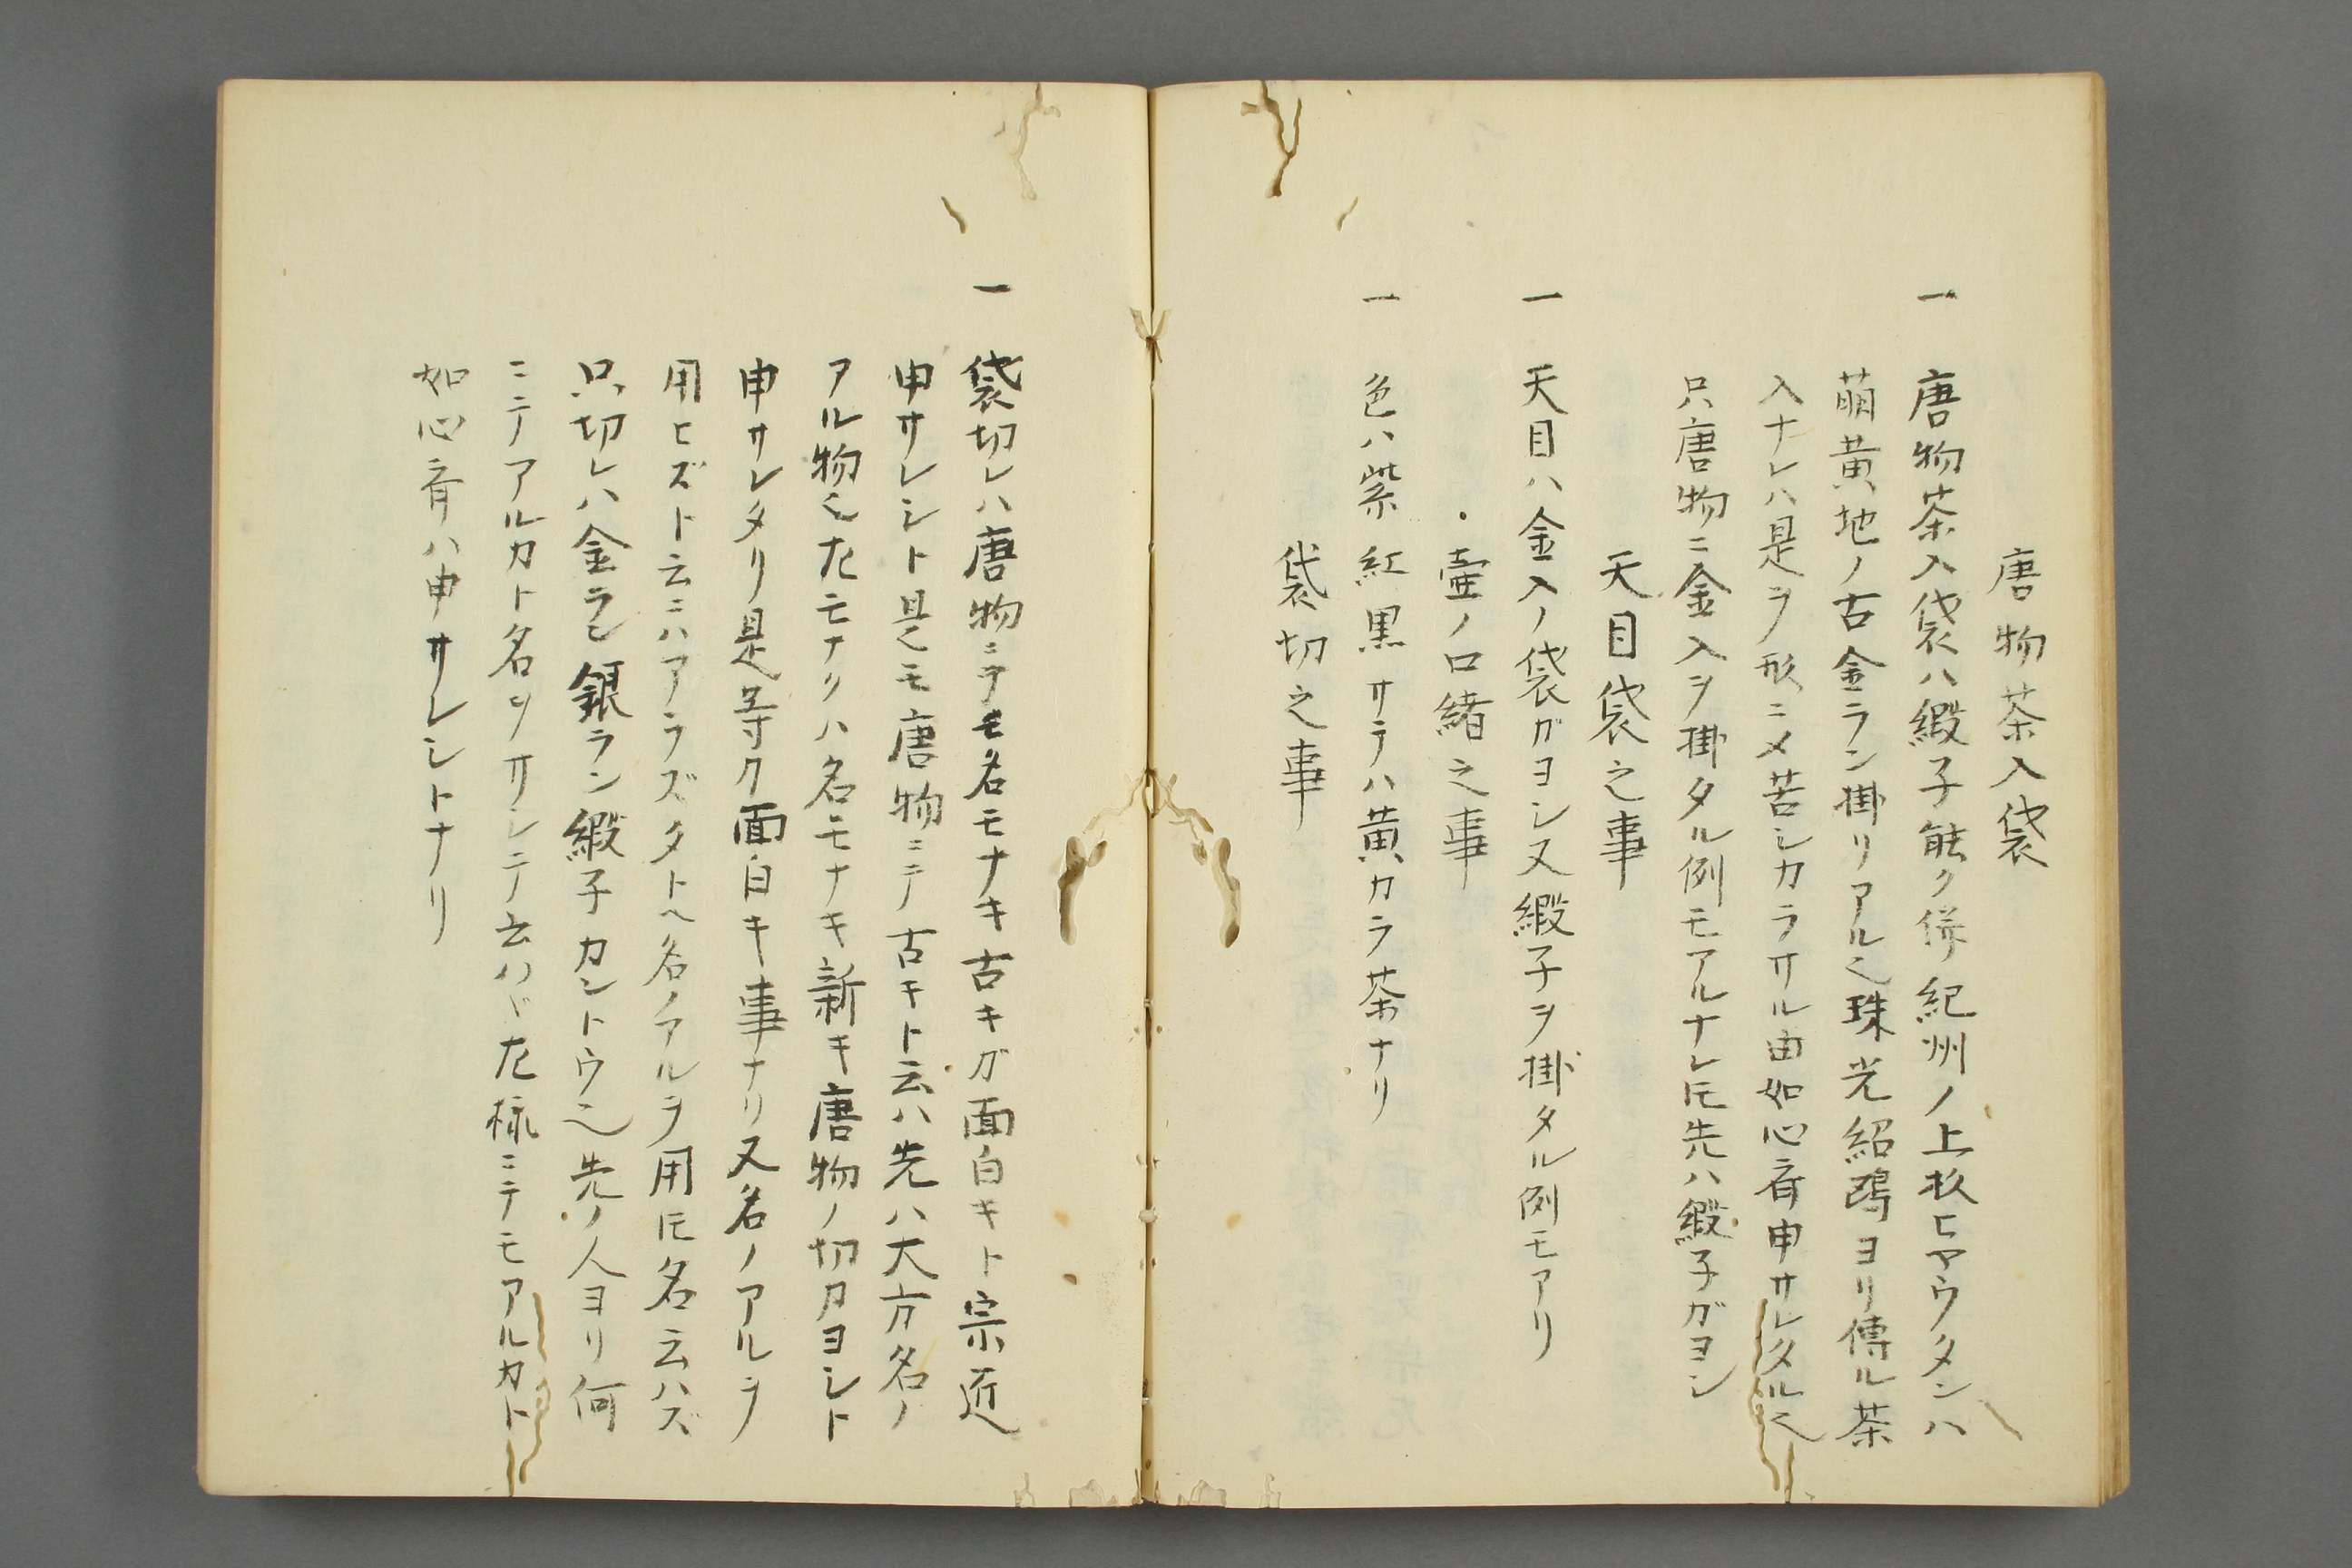 唐物茶入袋
一 唐物茶入袋ハ緞子能ク併紀州ノ上杉ヒヤウタンハ
萌黄地ノ古金ラン掛リアル也珠光紹鴎ヨリ傳ル茶
入ナレハ是ヲ形ニメ苦シカラサル由如心斎申サレタル也
只唐物ニ金入ヲ掛タル例モアルナレ𪜈先ハ緞子ガヨシ
天目袋之事
一 天目ハ金入ノ袋ガヨシ又緞子ヲ掛タル例モアリ
壷ノ口緒之事
一 色ハ紫紅黒サテハ黄カラ茶ナリ
袋切之事
一 袋切レハ唐物ニテモ名モナキ古キガ面白キト宗匠
申サレシト是モ唐物ニテ古キト云ハ先ハ大方名ノ
アル物也左モナクハ名モナキ新キ唐物ノ切カヨシト
申サレタリ是等ク面白キ事ナリ又名ノアルヲ
用ヒズト云ニハアラズタトヘ名ノアルヲ用𪜈名云ハズ
只切レハ金ラン銀ラン緞子カントウ也先ノ人ヨリ何
ニテアルカト名ヲサシテ云ハバ左様ニテモアルカト
如心斎ハ申サレシトナリ